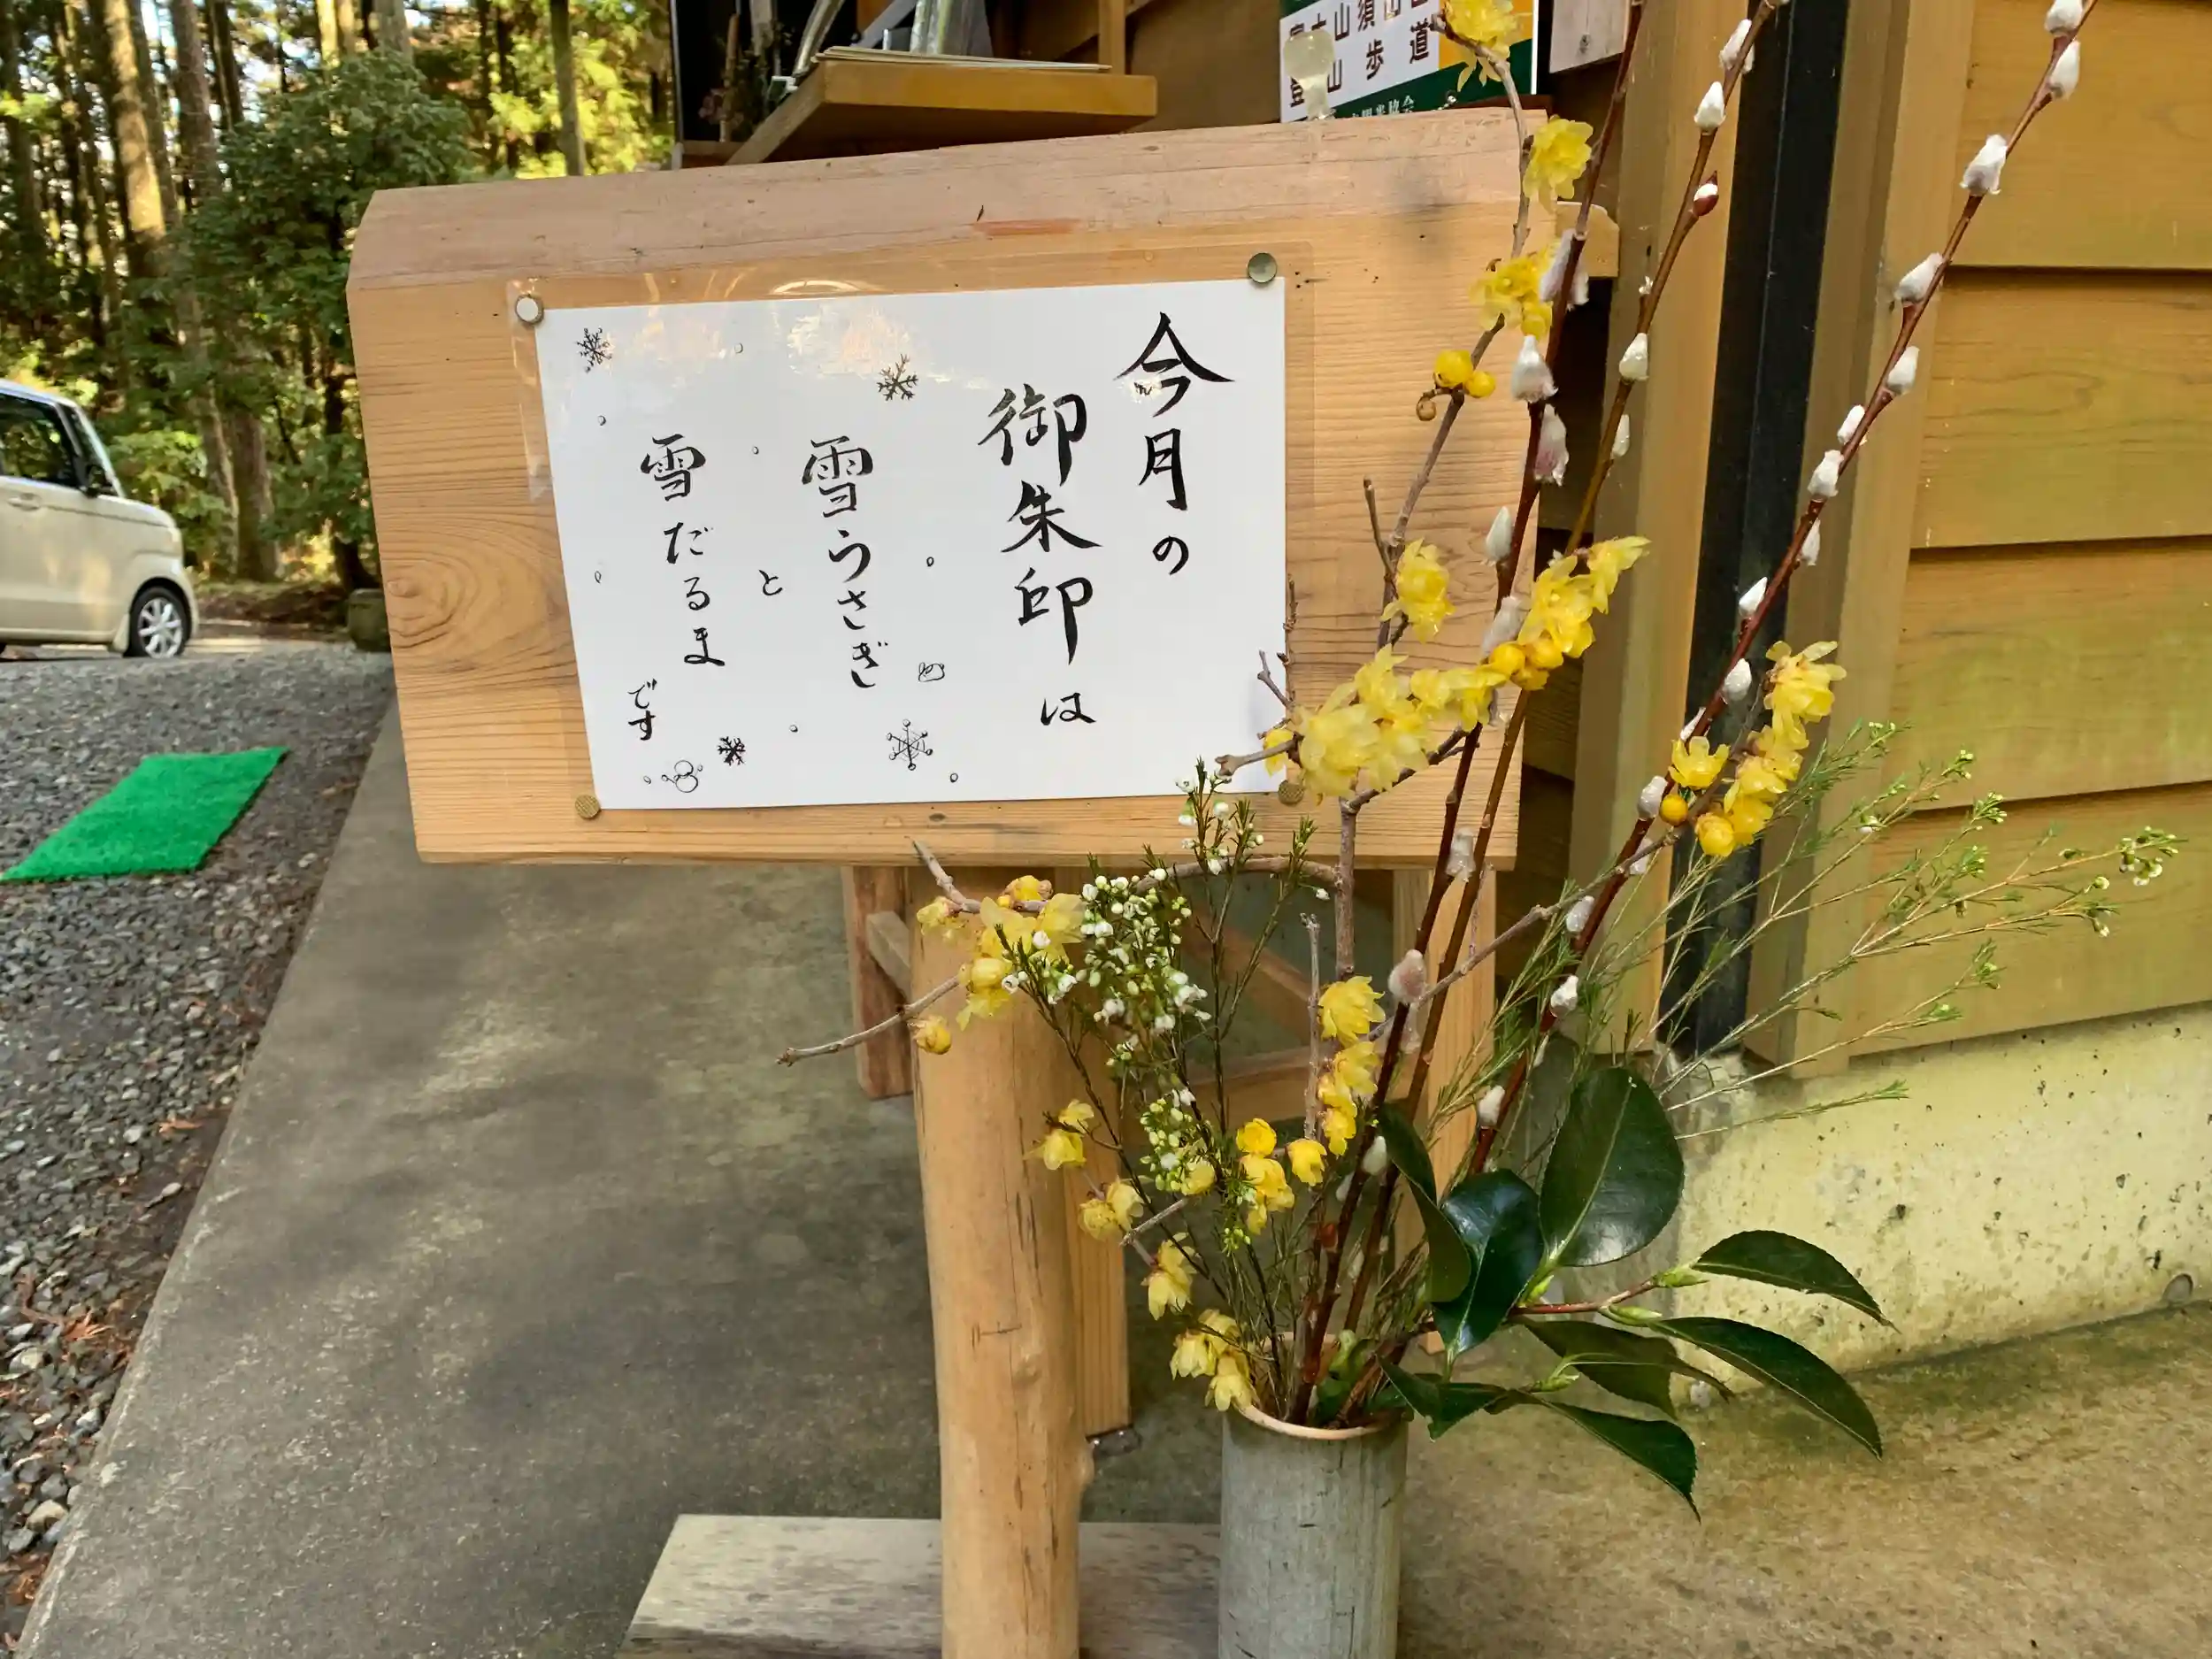 今月の
御朱印は
雪うさぎ
と
雪だるま
です
山須山口
登山歩道